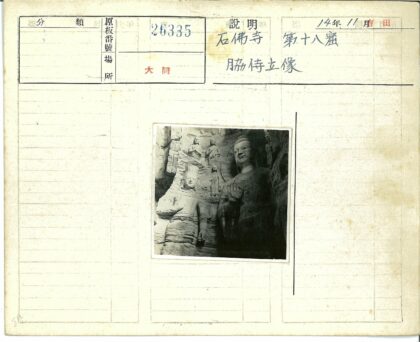 分類
原板番號
26335
場所
大同
説明
14年11月
石佛寺 第十八窟
脇侍立像